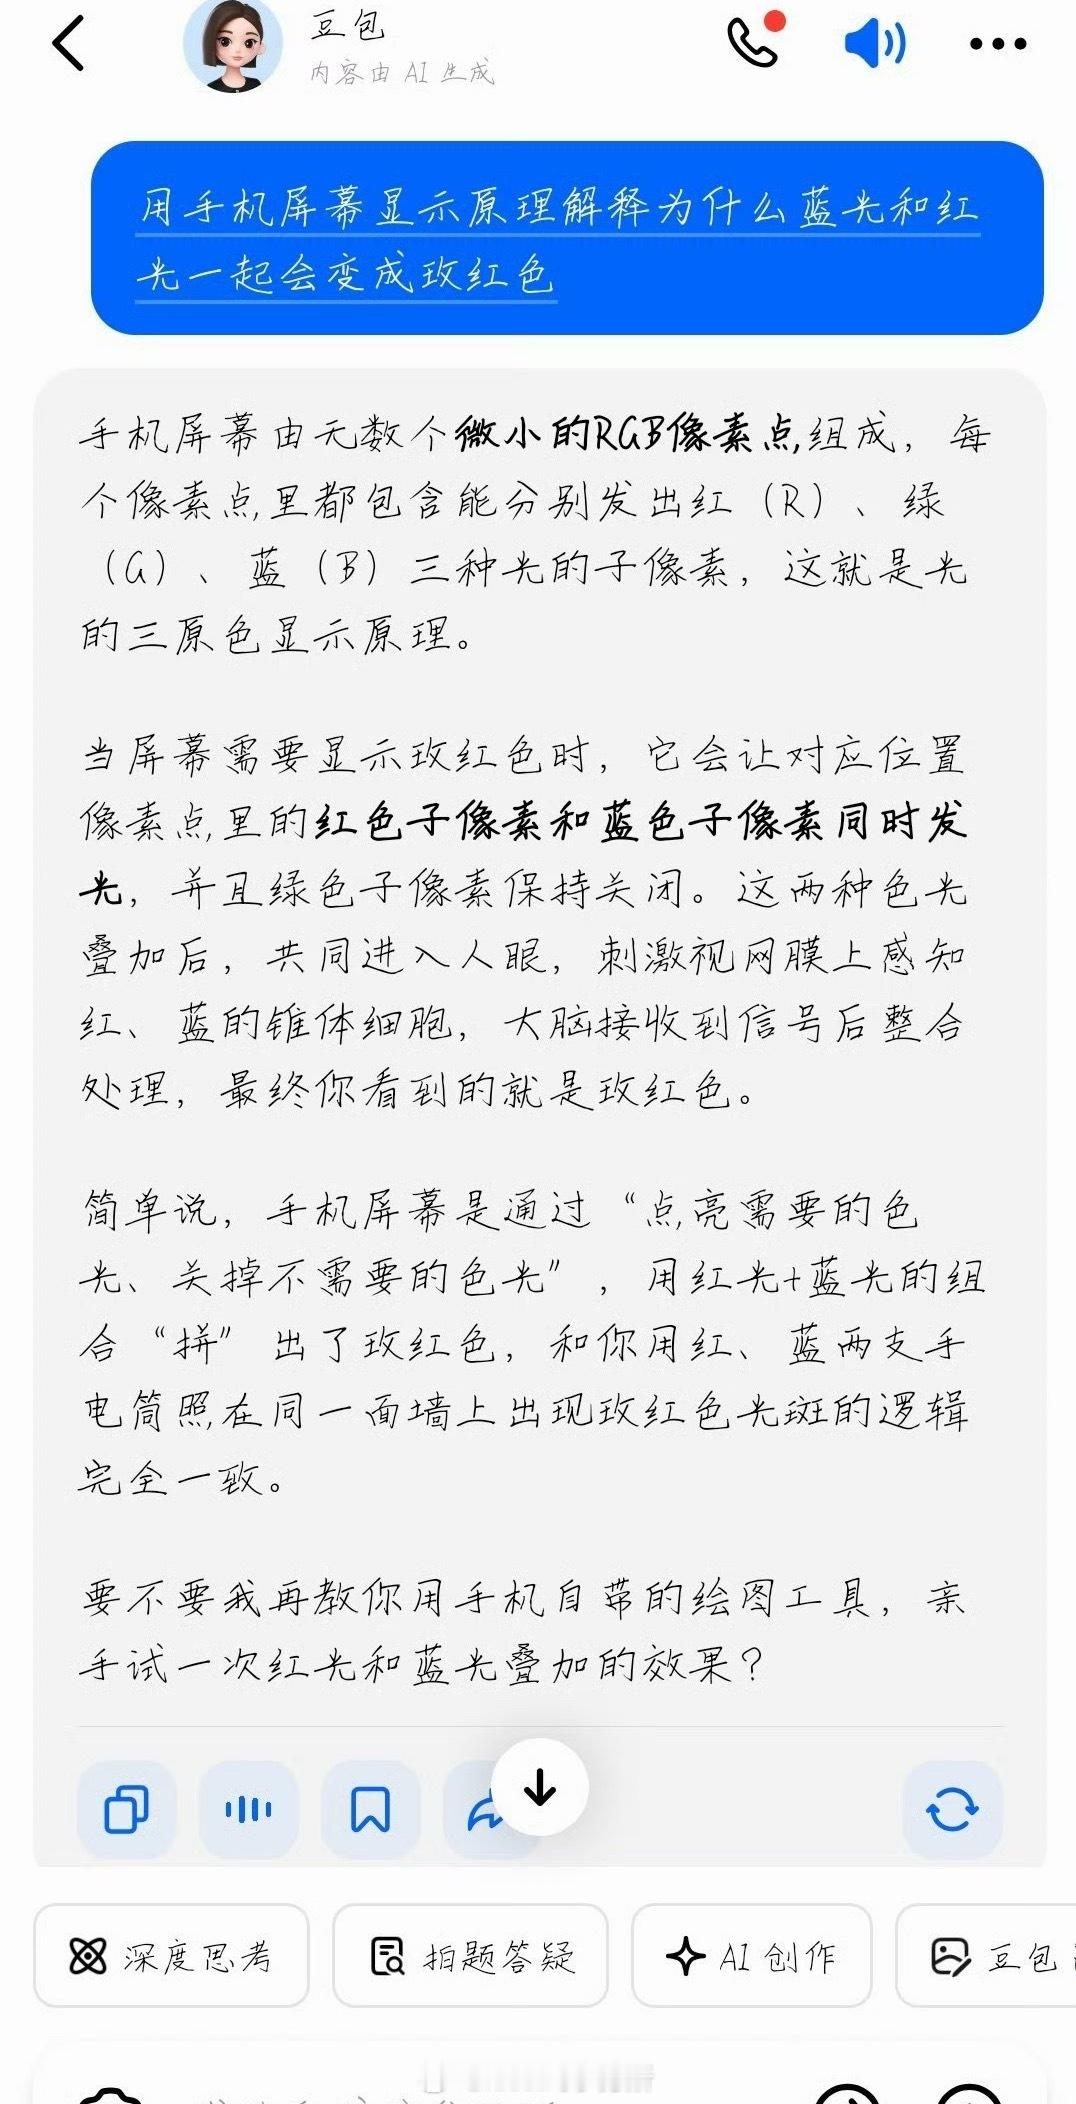 豆包
内容由 AI 生成
用手机屏幕显示原理解释为什么蓝光和红
光一起会变成玫红色
手机屏幕由无数个微小的RGB像素点组成，每
个像素点里都包含能分别发出红（R）、绿
（G）、蓝（B）三种光的子像素，这就是光
的三原色显示原理。
当屏幕需要显示玫红色时，它会让对应位置
像素点里的红色子像素和蓝色子像素同时发
光，并且绿色子像素保持关闭。这两种色光
叠加后，共同进入人眼，刺激视网膜上感知
红、蓝的锥体细胞，大脑接收到信号后整合
处理，最终你看到的就是玫红色。
简单说，手机屏幕是通过“点亮需要的色
光、关掉不需要的色光”，用红光+蓝光的组
合“拼”出了玫红色，和你用红、蓝两支手
电筒照在同一面墙上出现玫红色光斑的逻辑
完全一致。
要不要我再教你用手机自带的绘图工具，亲
手试一次红光和蓝光叠加的效果？
深度思考 拍题答疑 AI 创作 豆包